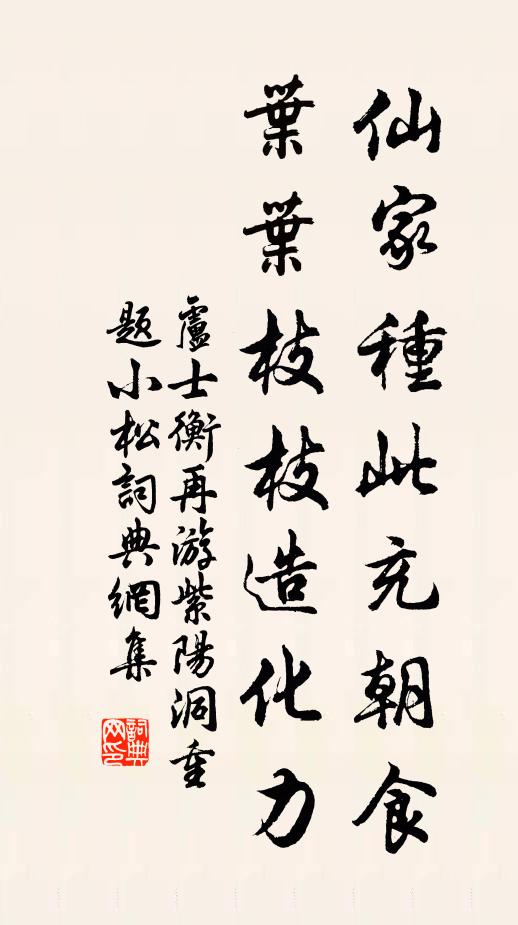 仙家種此充朝食
葉葉枝枝造化力
盧士衡再游紫陽洞重
題小松詞典網集
詞典
网印